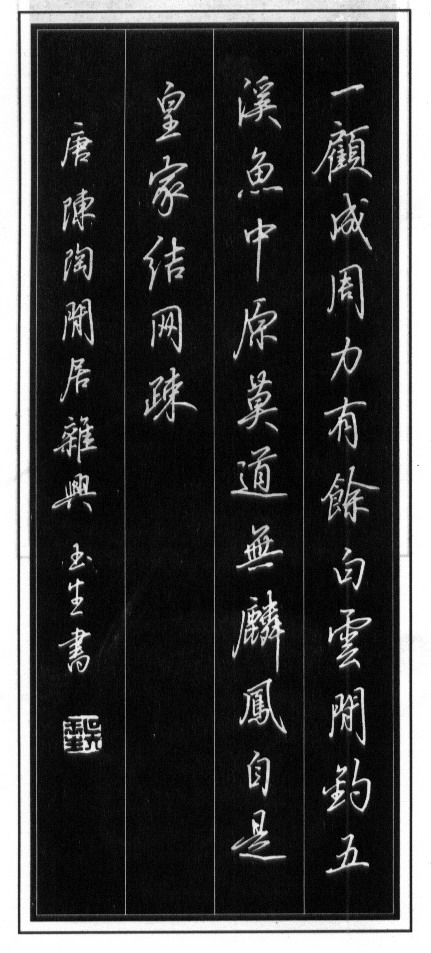 一顧成周力有餘白雲閒釣五
溪魚中原莫道無麟鳳自是
皇家結网疎
唐陳陶閒居雜興 玉生書